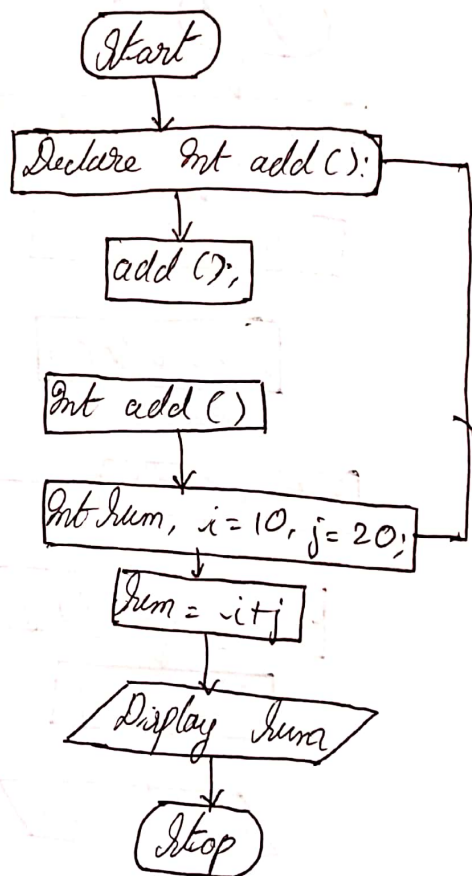 Start
Declare Int add ();
add ();
Int add ()
Int sum, i=10, j=20;
Sum = i+j
Display sum
Stop